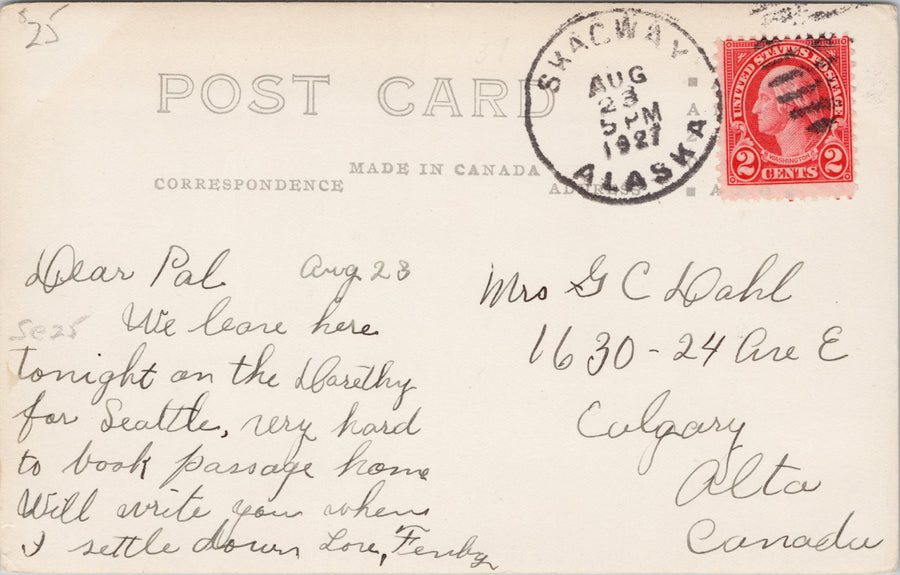 $25
SKAGWAY
AUG
23
5 PM
1927
ALASKA
UNITED STATES POSTAGE
WASHINGTON
2 CENTS 2
POST CARD
MADE IN CANADA
CORRESPONDENCE
ADDRESS
Dear Pal Aug 23
We leave here
tonight on the Dorethy
for Seattle, very hard
to book passage home
Will write you when
I settle down Love,
Mrs G C Dahl
1630-24 Ave E
Calgary
Alta
Canada